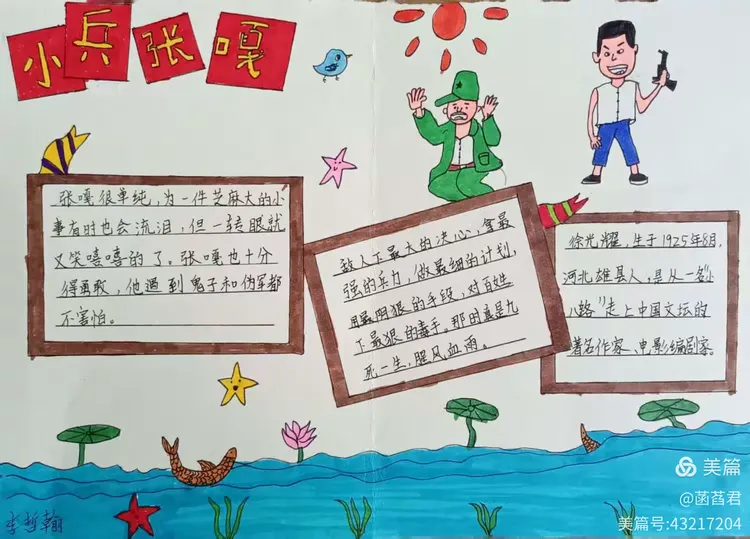 小兵张嘎
张嘎很单纯，为一件芝麻大的小
事有时也会流泪，但一转眼就
又笑嘻嘻的了。张嘎也十分
得勇敢，他遇到鬼子和伪军都
不害怕。
敌人下最大的决心，拿最
强的兵力，做最细的计划，
用最阴狠的手段，对百姓
下最狠的毒手。那时真是九
死一生，腥风血雨。
徐光耀，生于1925年8月，
河北雄县人，是从一名"小
八路"走上中国文坛的
著名作家、电影编剧家。
李哲翰
美篇
@菡萏君
美篇号:43217204